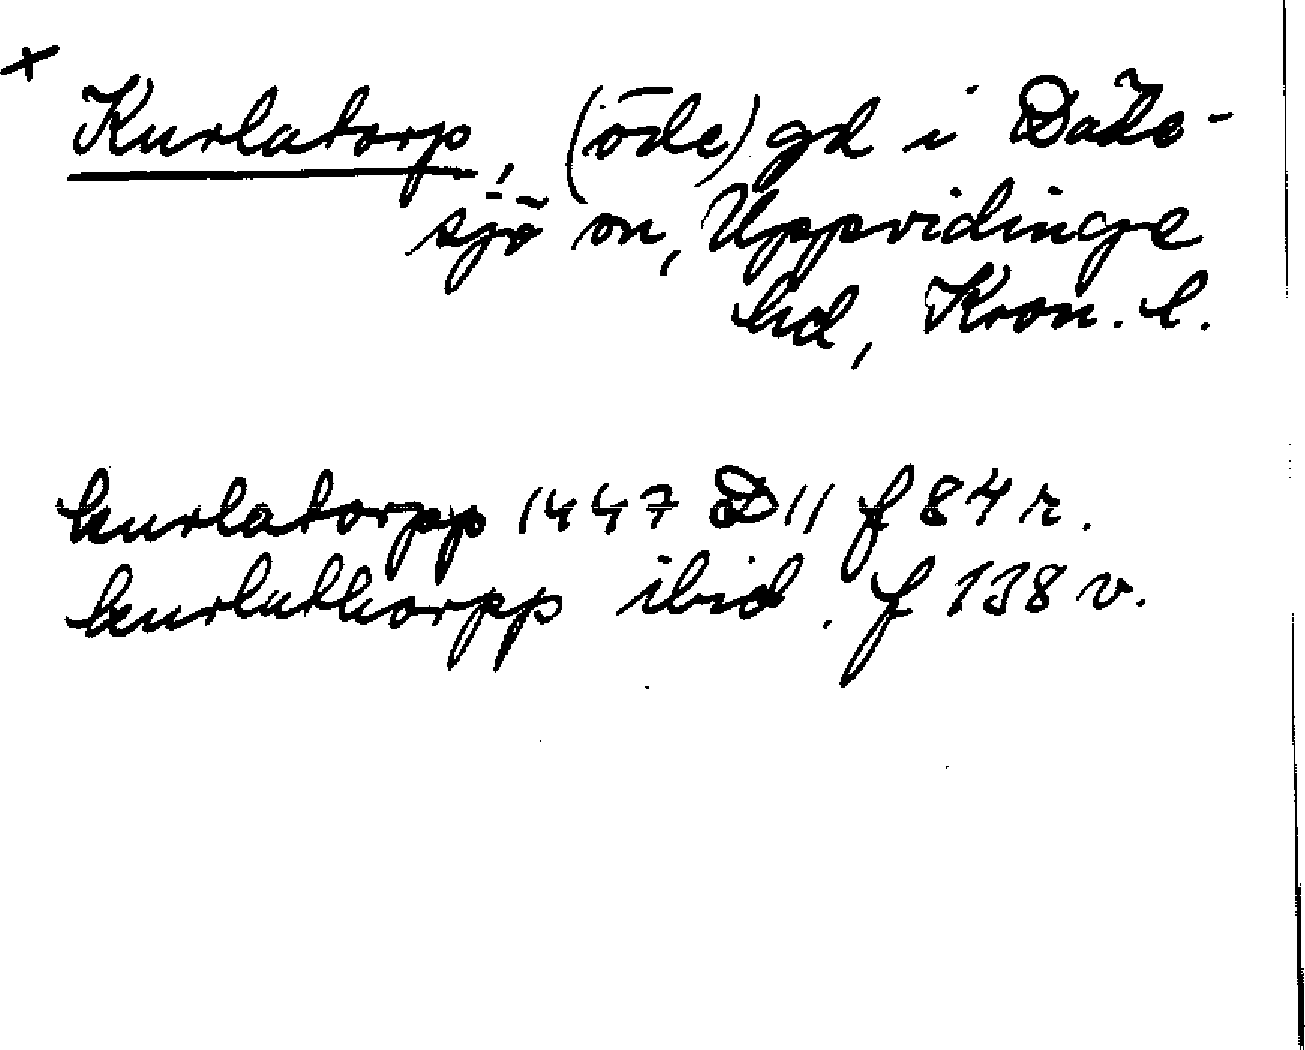 +
Kurlatorp, (öde) gd i Däde-
sjö sn, Uppvidinge
hd, Kron. l.
kurlatorpp 1447 D11 f 84 r.
kurlathorpp ibid. f 138 v.